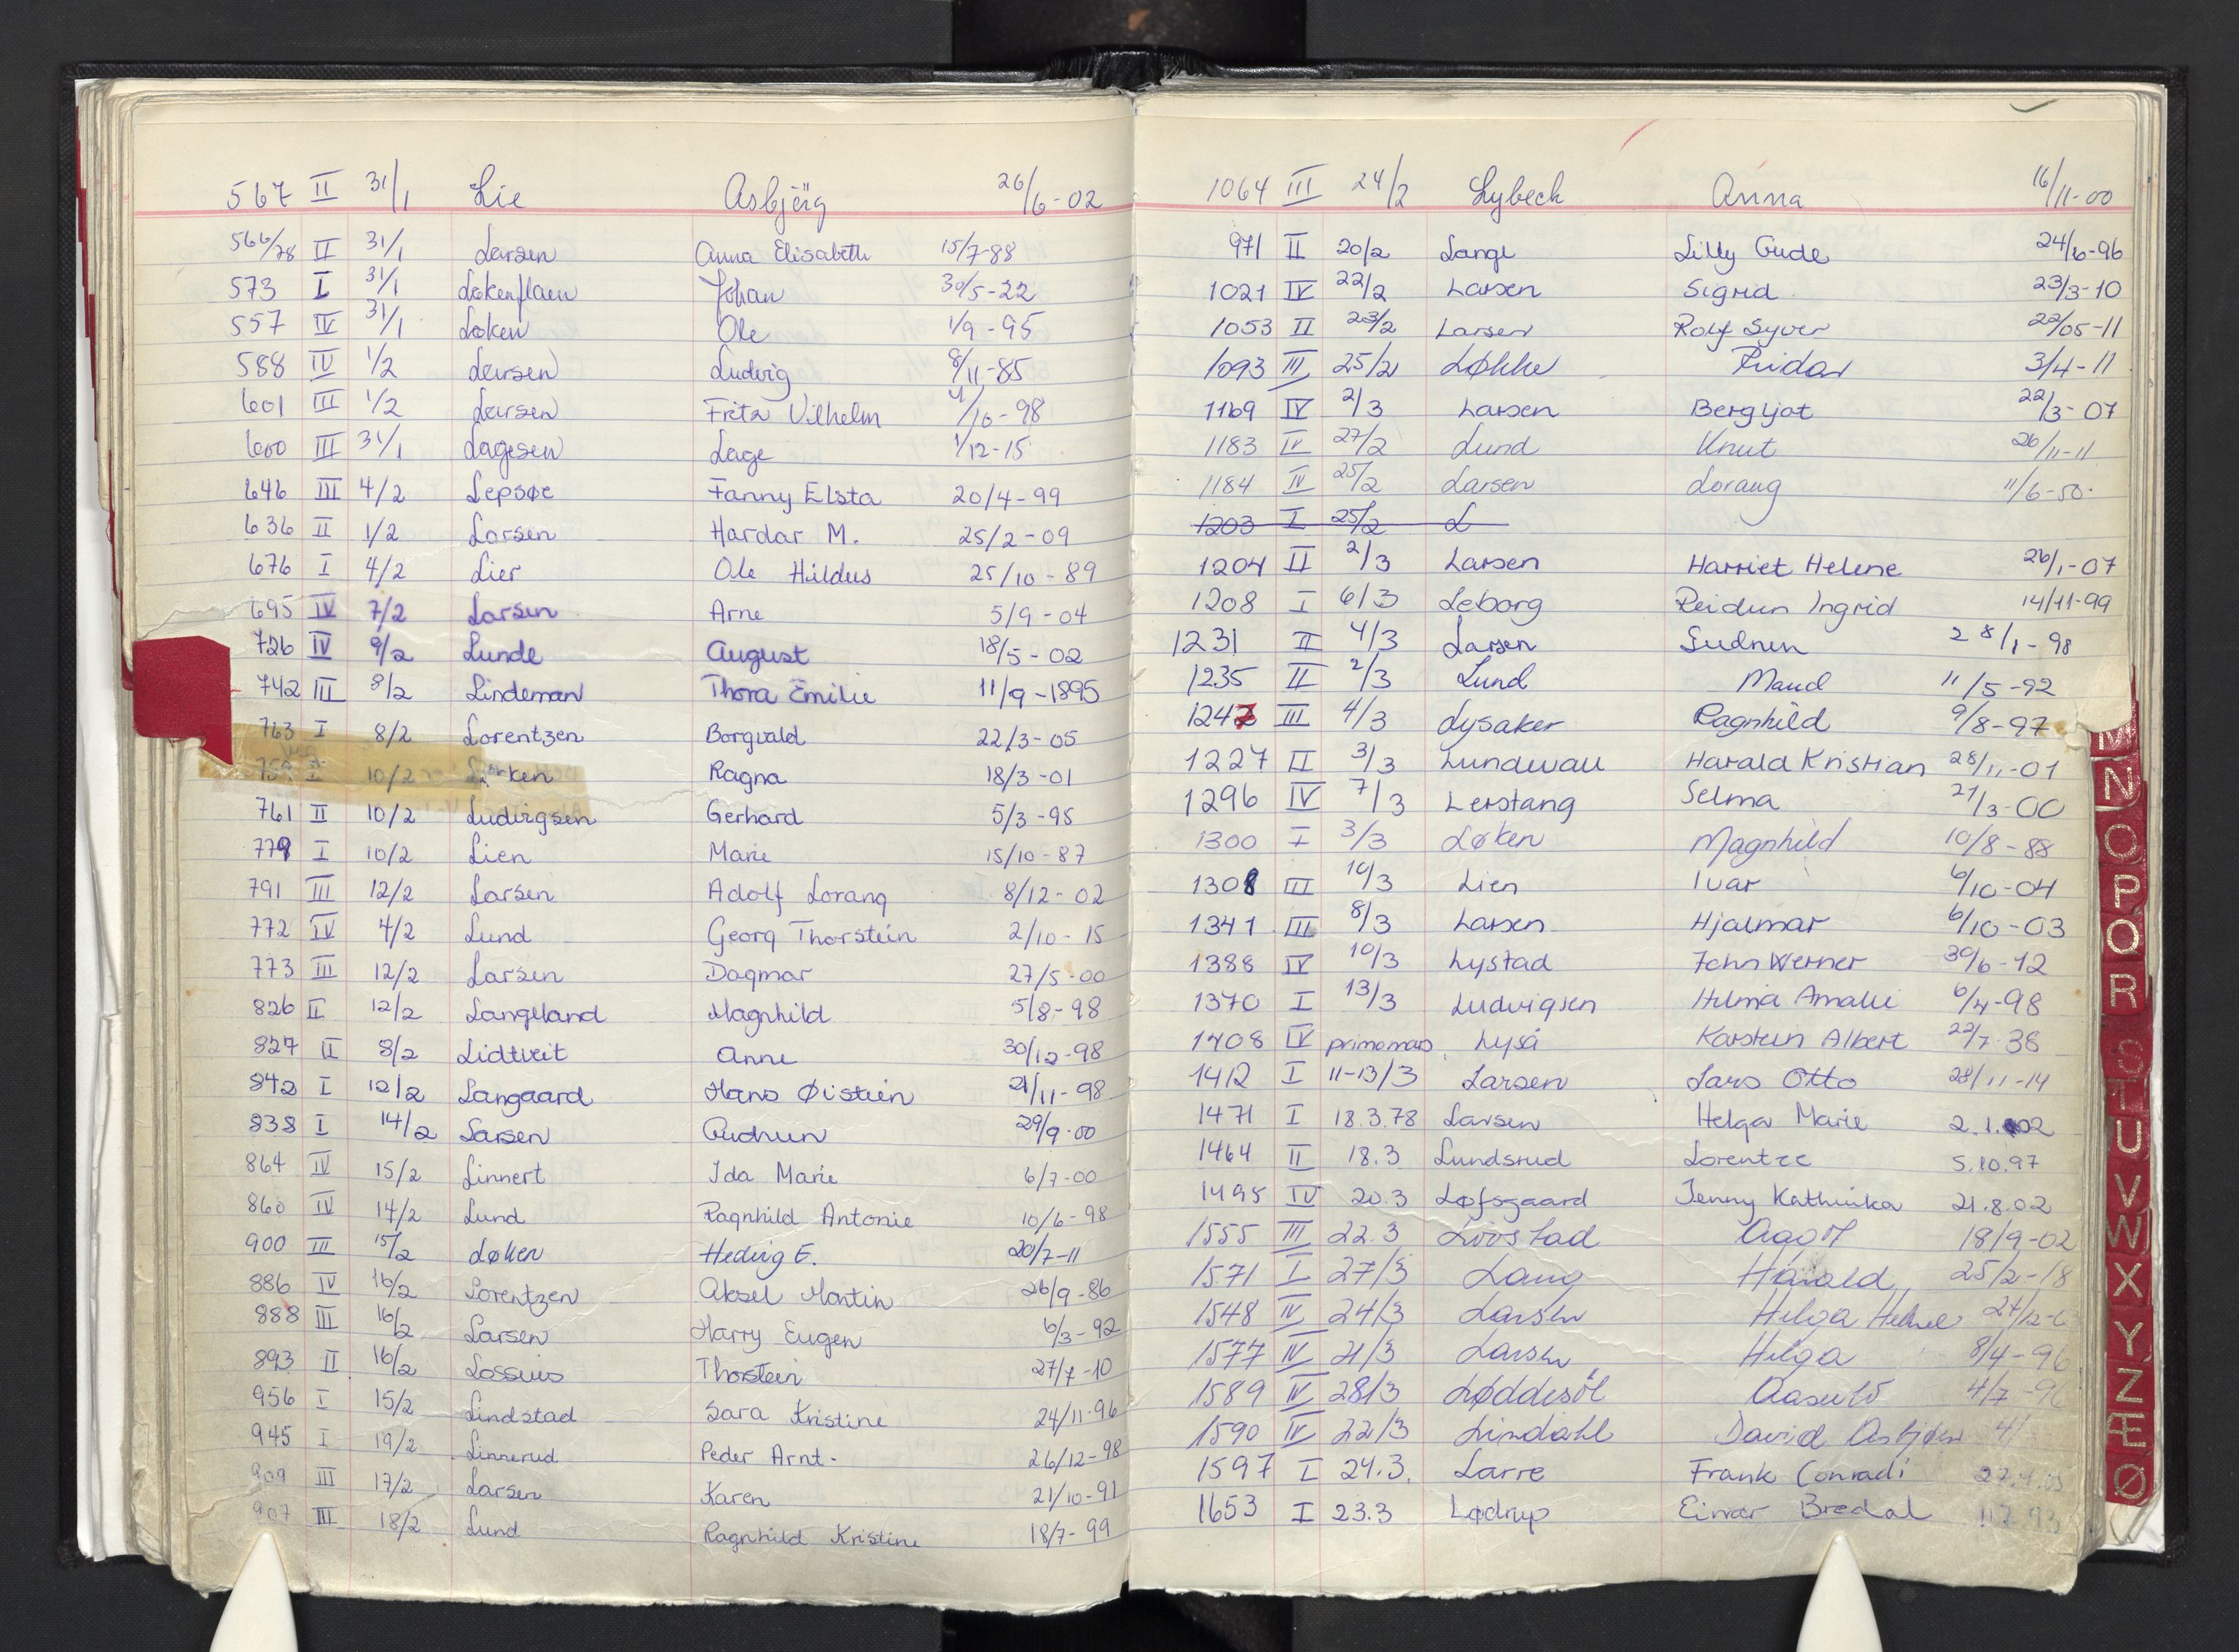 567 II 31/1 Lie Asbjörg 26/6-02
566/78 II 31/1 Larsen Anna Elisabeth 15/7-88
573 I 31/1 Løkenflaen Johan 30/5-22
557 IV 31/1 Løken Ole 1/9-95
588 IV 1/2 Larsen Ludvig 8/11-85
601 III 1/2 Larsen Fritz Vilhelm /10-98
600 III 31/1 Lagesen Lage 1/12-15
646 III 4/2 Lepsøe Fanny Elsta 20/4-99
636 II 1/2 Larsen Hardar M. 25/2-09
676 I 4/2 Lier Ole Hildus 25/10-89
695 IV 7/2 Larsen Arne 5/9-04
726 IV 9/2 Lunde August 18/5-02
742 III 8/2 Lindeman Thora Emilie 11/9-1895
763 I 8/2 Lorentzen Borgvald 22/3-05
I 10/2 Ragna 18/3-01
761 II 10/2 Ludvigsen Gerhard 5/3-95
779 I 10/2 Lien Marie 15/10-87
791 III 12/2 Larsen Adolf Lorang 8/12-02
772 IV 4/2 Lund Georg Thorstein 2/10-15
773 III 12/2 Larsen Dagmar 27/5-00
826 II 12/2 Langeland Magnhild 5/8-98
827 II 8/2 Lidtveit Anne 30/12-98
842 I 12/2 Langaard Hans Øistein 21/11-98
838 I 14/2 Larsen Gudrun 29/9-00
864 IV 15/2 Linnert Ida Marie 6/7-00
860 IV 14/2 Lund Ragnhild Antonie 10/6-98
900 III 15/2 Løken Hedvig E. 20/7-11
886 IV 16/2 Lorentzen Aksel Martin 26/9-86
888 III 16/2 Larsen Harry Eugen 6/3-92
893 II 16/2 Lossius Thorstein 27/7-10
956 I 15/2 Lindstad Sara Kristine 24/11-96
945 I 19/2 Linnerud Peder Arnt. 26/12-98
909 III 17/2 Larsen Karen 21/10-91
907 III 18/2 Lund Ragnhild Kristine 18/7-99
1064 III 24/2 Lybeck Anna 16/11-00
971 II 20/2 Lange Lilly Gude 24/6-96
1021 IV 22/2 Larsen Sigrid 23/3-10
1053 II 23/2 Larsen Rolf Syver 22/05-11
1093 III 25/2 Løkke Reidar 3/4-11
1169 IV 2/3 Larsen Bergljot 22/3-07
1183 IV 27/2 Lund Knut 26/11-11
1184 IV 25/2 Larsen Lorang 11/6-50.
1203 I 25/2 L
1204 II 2/3 Larsen Harriet Helene 26/1-07
1208 I 6/3 Leborg Reidun Ingrid 14/11-99
1231 II 4/3 Larsen Gudrun 28/1-98
1235 II 2/3 Lund Maud 11/5-92
1242 III 4/3 Lysaker Ragnhild 9/8-97
1227 II 3/3 Lundwall Harald Kristian 28/11-01
1296 IV 7/3 Lerstang Selma 21/3-00
1300 I 3/3 Løken Magnhild 10/8-88
1308 III 10/3 Lien Ivar 6/10-04
1341 III 8/3 Larsen Hjalmar 6/10-03
1388 IV 10/3 Lystad John Werner 30/6-12
1370 I 13/3 Ludvigsen Hilma Amalie 6/4-98
1408 IV primo mars Lyså Karstein Albert 22/7-38
1412 I 11-13/3 Larsen Lars Otto 28/11-14
1471 I 18.3.78 Larsen Helga Marie 2.1.02
1464 II 18.3 Lundsrud Lorentze 5.10.97
1495 IV 20.3 Løfsgaard Jenny Kathinka 21.8.02
1555 III 22.3 Livostad Agot 18/9-02
1571 I 27/3 Lang Harald 25/2-18
1548 IV 24/3 Larsen Helga Helene
1577 IV 21/3 Larsen Helga 8/4-96
1589 IV 28/3 Løddesöl Aasulv 4/7-96
1590 IV 22/3 Lindahl David Asbjørn
1597 I 24.3. Larre Frank Conradi
1653 I 23.3 Lødrup Einar Bredal
M
N
O
P
Q
R
S
T
U
V
W
X
Y
Z
Æ
Ø